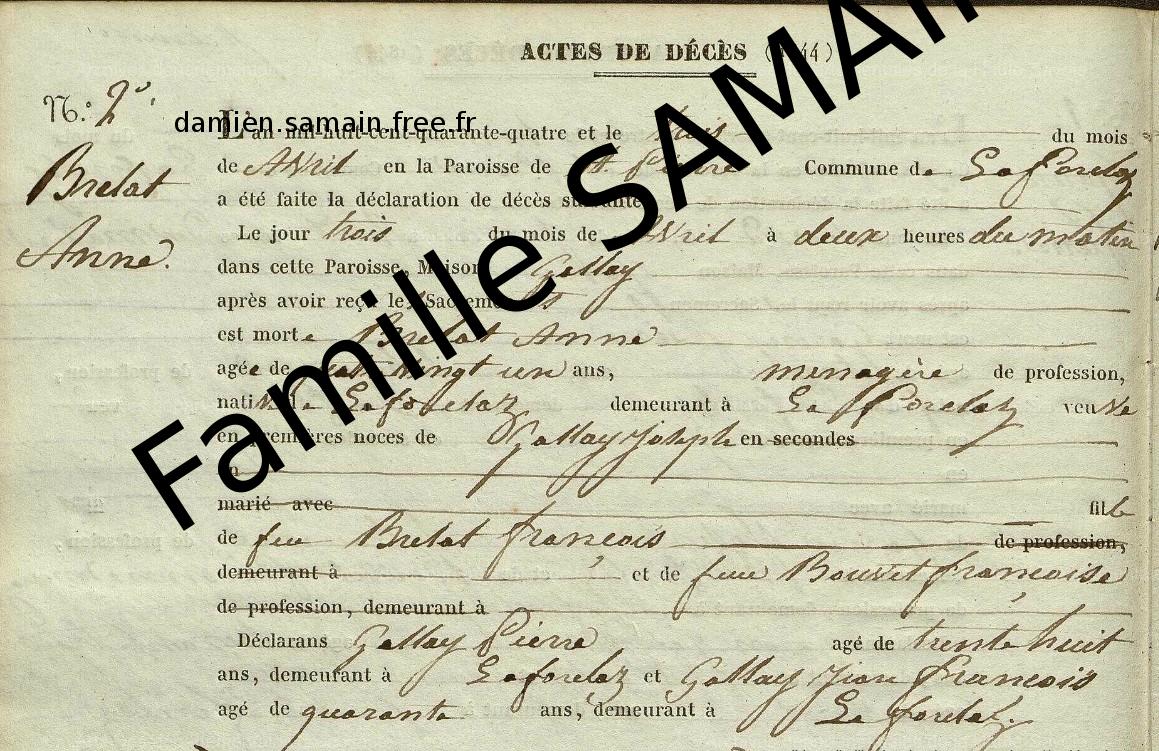 ACTES DE DÉCÈS (1844)
N.º 2
damien.samain.free.fr
Famille SAMAIN
L'an mil-huit-cent-quarante-quatre et le trois du mois
Brelat
de Avril en la Paroisse de St pierre Commune de La forclaz
a été faite la déclaration de décès suivante
Anne.
Le jour trois du mois de Avril à deux heures du matin
dans cette Paroisse, Maison Gallay
après avoir reçu les Sacements
est morte Brelat Anne
agée de vingt un ans, menagère de profession,
native de La forclaz demeurant à La forclaz veuve
en premières noces de Gallay joseph en secondes
en
marié avec fille
de feu Brelat françois de profession,
demeurant à et de feue Bouvet françoise
de profession, demeurant à
Déclarans Gallay Pierre agé de trente huit
ans, demeurant à La forclaz et Gallay jean françois
agé de quarante ans, demeurant à La forclaz.